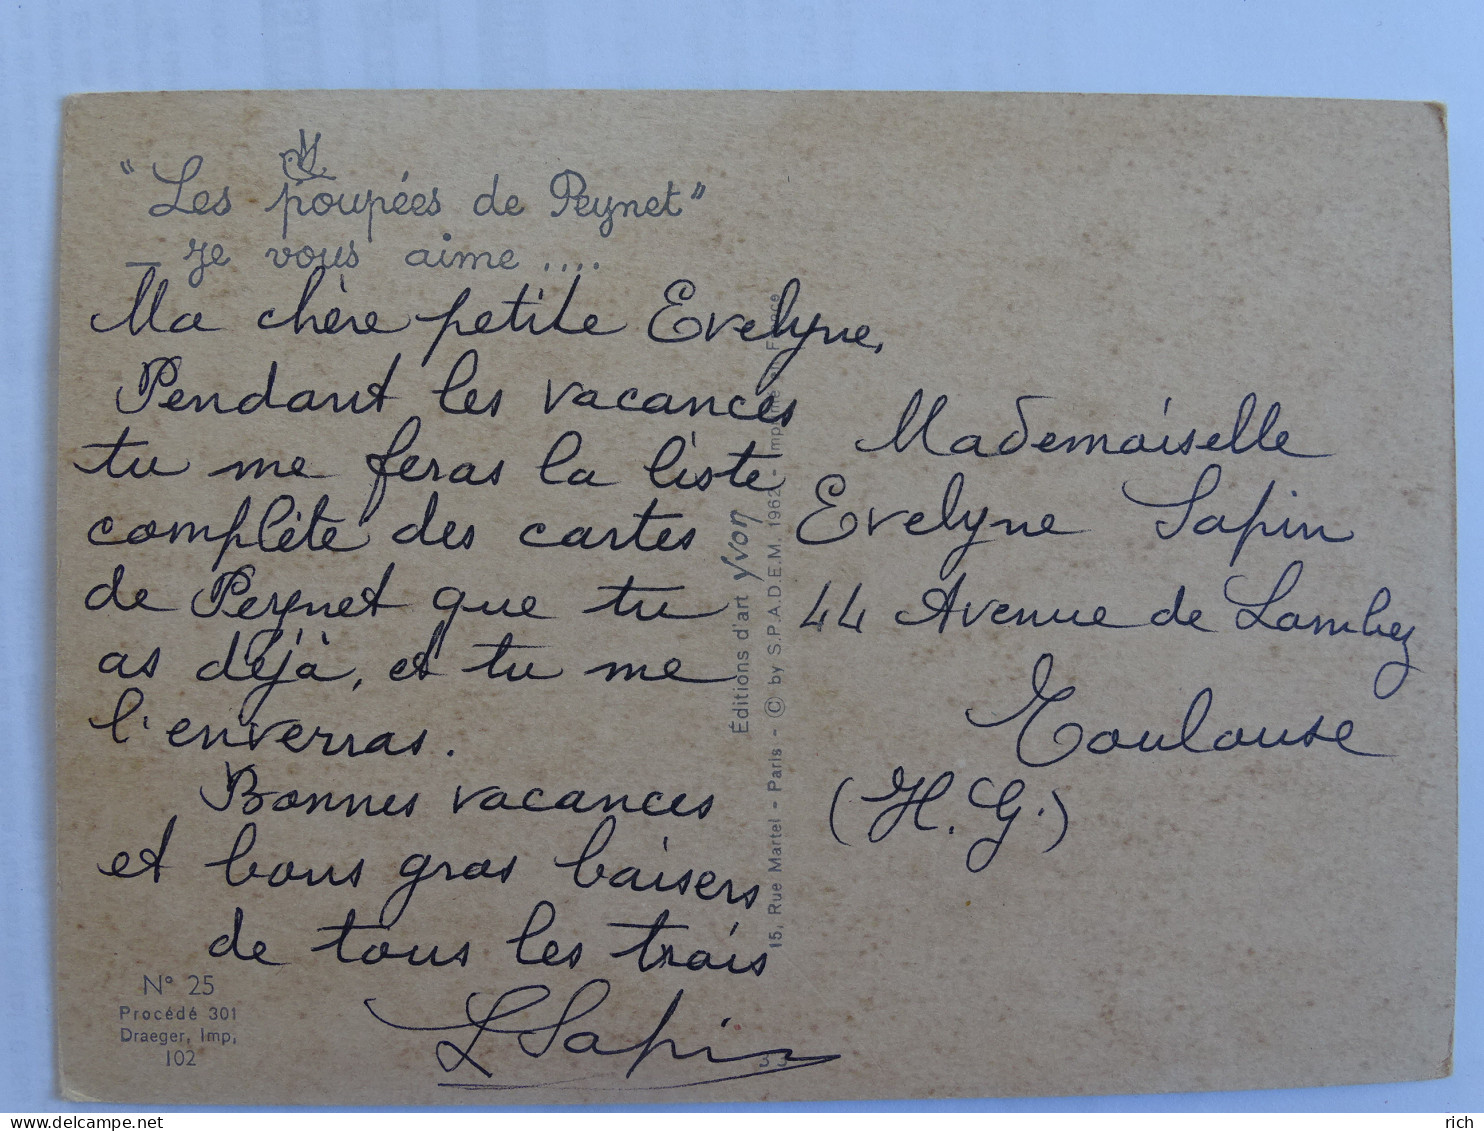 "Les poupées de Peynet"
— je vous aime ....
Ma chère petite Evelyne,
Pendant les vacances
tu me feras la liste
complète des cartes
de Peynet que tu
as déjà, et tu me
l'enverras.
Bonnes vacances
et bons gros baisers
de tous les trois
L Sapin
N° 25
Procédé 301
Draeger, Imp,
102
Éditions d'art Yvon
15, Rue Martel - Paris - © by S.P.A.D.E.M. 1962 - Imprimé en France
33
Mademoiselle
Evelyne Sapin
44 Avenue de Lombez
Toulouse
(H. G.)
rich